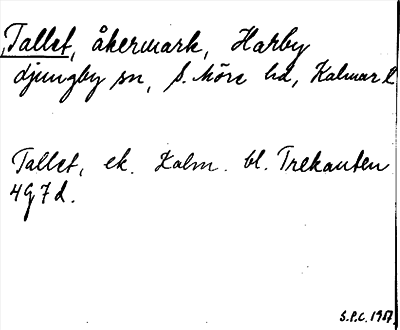 Tallet, åkermark, Harby
djungby sn, S. Möre hd, Kalmar l
Tallet, ek. Kalm. bl. Trekanten
4G7d.
S.P.C. 1957.